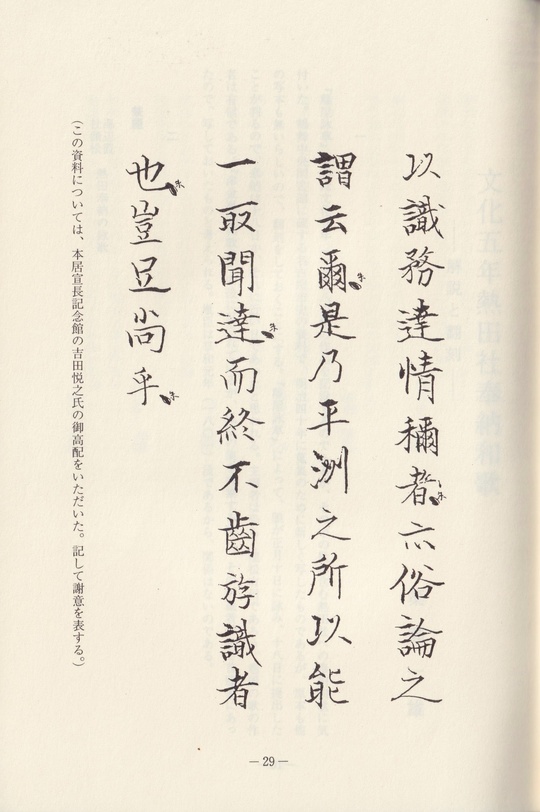 以識務達情稱者亦俗論之
謂云爾是乃平洲之所以能
一取聞達而終不齒於識者
也豈足尚乎
(この資料については、本居宣長記念館の吉田悦之氏の御高配をいただいた。記して謝意を表する。)
—29—